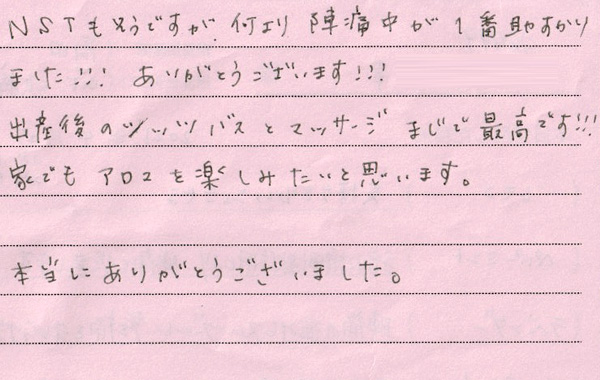 NSTもそうですが、何より 陣痛中が1番助かり
ました!!! ありがとうございます!!!
出産後のツッツバスとマッサージ まじで最高です!!!
家でも アロマを楽しみたいと思います。
本当にありがとうございました。